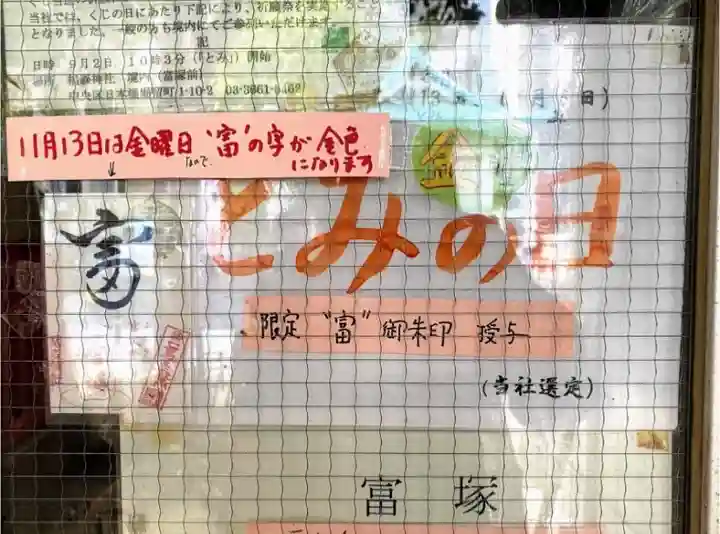 当社では、くじの日にあたり下記により、祈願祭を実施すること
となりました。一般の方も境内にてご参列いただけます。
記
日時 9月2日、10時3分(「とみ」)開始
境内(富塚前)
中央区日本橋堀留町1-10-2 03-3661-5462
11月13日は金曜日なので“富”の字が金色
になります
富
13
日)
金
とみの日
限定“富”御朱印 授与
(当社選定)
富塚